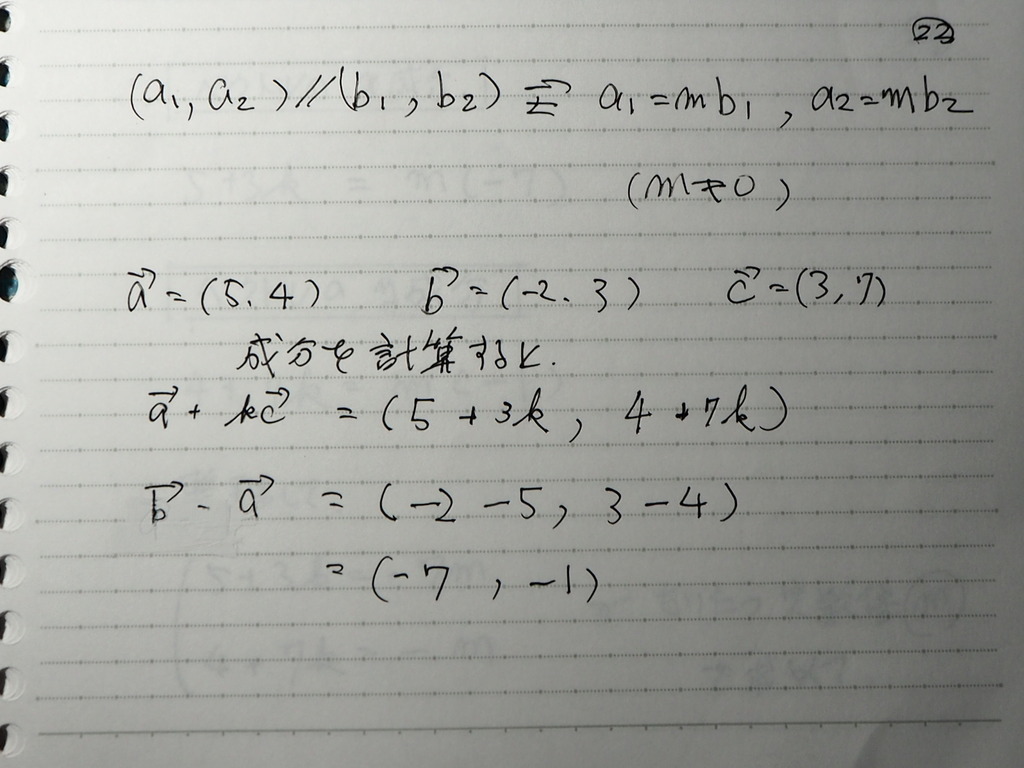 22
(a₁, a₂) // (b₁, b₂) ⇄ a₁=mb₁, a₂=mb₂
(m≠0)
a⃗=(5.4) b⃗=(-2.3) c⃗=(3,7)
成分を計算すると.
a⃗+kc⃗=(5+3k, 4+7k)
b⃗-a⃗=(-2-5, 3-4)
=(-7, -1)